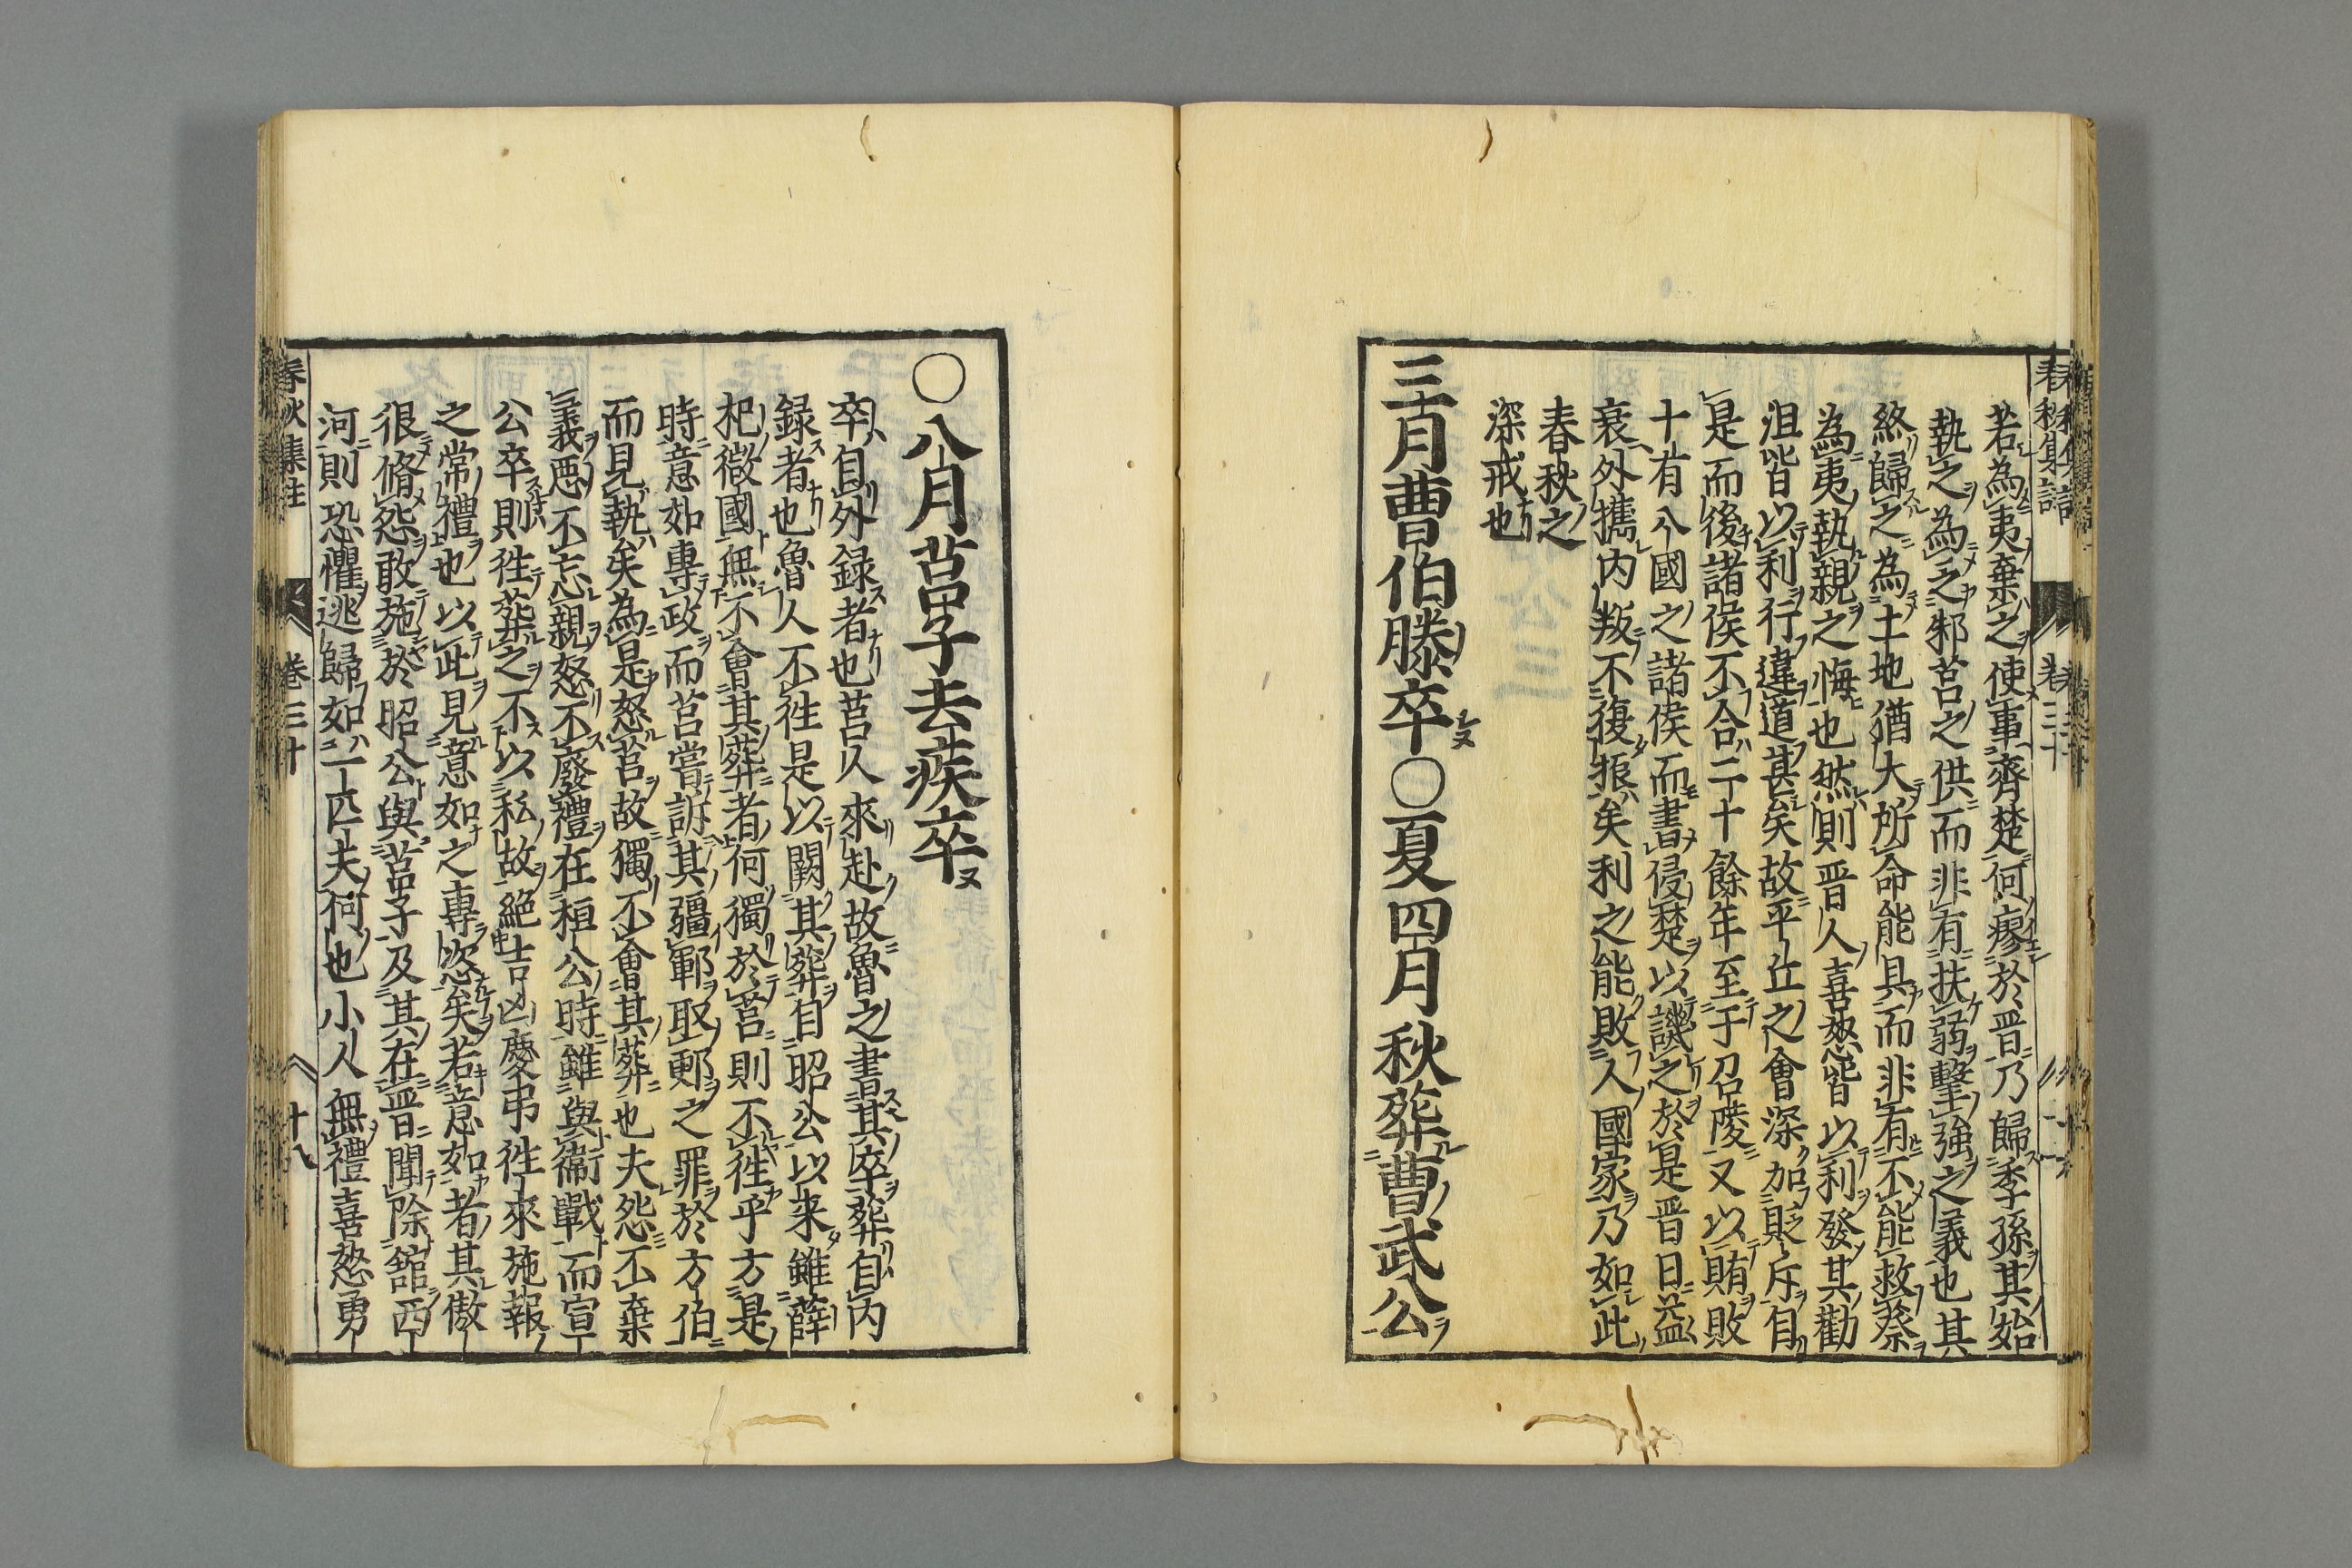 若為夷棄之使事齊楚何瘳於晋乃歸季孫其始
執之為之邾莒之供而非有扶弱擊強之義也其
終歸之為土地猶大所命能具而非有不能救蔡
為夷執親之悔也然則晋人喜怒皆以利發其勸
沮皆以利行違道甚矣故平丘之會深加貶斥自
是而後諸侯不合二十餘年至于召陵又以賄敗
十有八國之諸侯而書侵楚以譏之於是晋日益
衰外攜内叛不復振矣利之能敗人國家乃如此
春秋之
深戒也
三月曹伯滕卒○夏四月秋葬曹武公
春秋集註 卷三十
○八月莒子去疾卒
卒自外録者也莒人來赴故魯之書其卒葬自内
録者也魯人不往是以闕其葬自昭公以来雖薛
杞微國無不會其葬者何獨於莒則不往乎方是
時意如專政而莒嘗訴其疆鄆取郠之罪於方伯
而見執矣為是怒莒故獨不會其葬也夫怨不棄
義惡不忘親怒不廢禮在桓公時雖與衞戰而宣
公卒則往葬之不以私故絶吉凶慶弔徃來施報
之常禮也以此見意如之專恣矣若意如者其傲
很脩怨敢施於昭公與莒子及其在晋聞除舘西
河則恐懼逃歸如一匹夫何也小人無禮喜怒勇
春秋集註 卷三十 十八